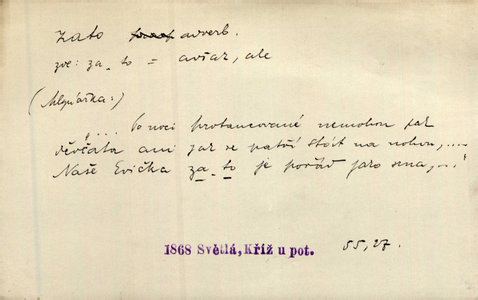 zato adverb.
zvl: za-to = avšak, ale
(Mlynářka:)
"... Po noci protancované nemohou pak
děvčata ani jak se patří stát na nohou, ....
Naše Evička za-to je pořád jako srna, ..."
1868 Světlá, Kříž u pot. 55, 27.